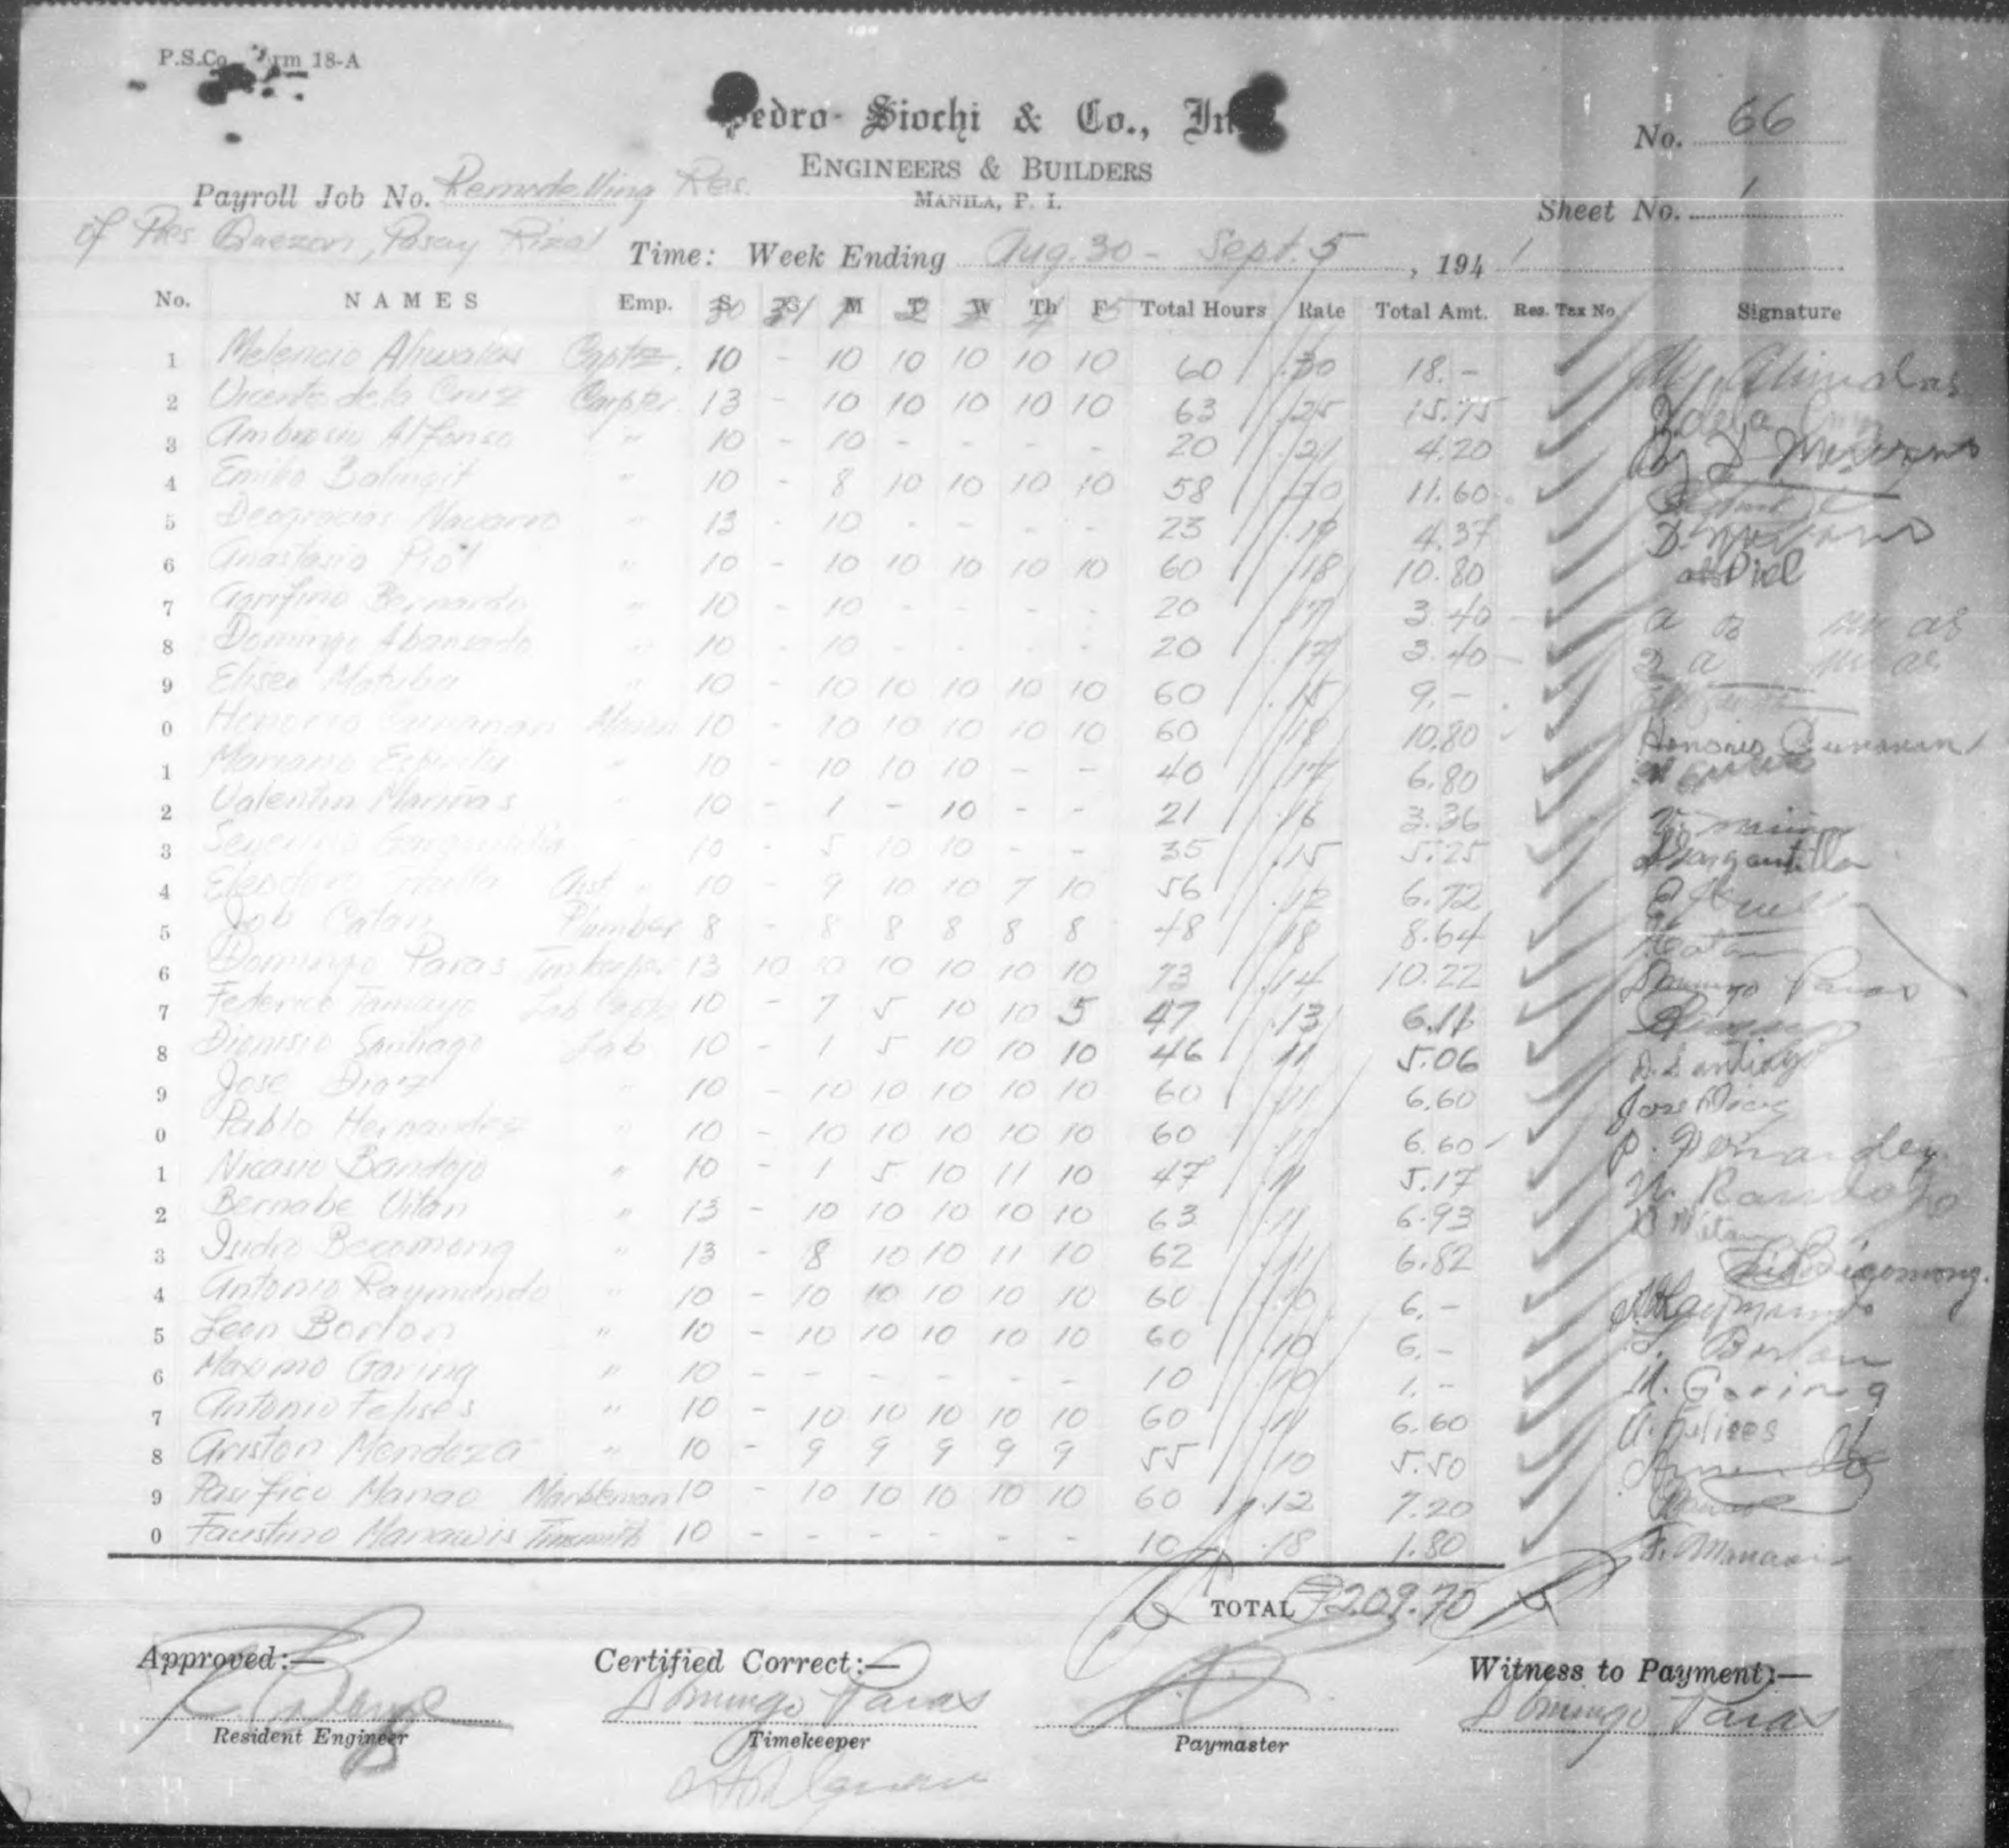 P.S.Co. Form 18-A
Pedro Siochi & Co., Inc.
No. 66
ENGINEERS & BUILDERS
Payroll Job No. Remodelling Res.
MANILA, P. I.
Sheet No. 1
of Pres Quezon, Pasay Rizal
Time: Week Ending Aug. 30 - Sept. 5, 1941
No. NAMES Emp. S S M T W Th F Total Hours Rate Total Amt. Res. Tax No. Signature
30 31 1 2 3 4 5
1 Melencio Aliwalas Cptz. 10 - 10 10 10 10 10 60 .30 18.-
2 Vicente de la Cruz Carpter. 13 - 10 10 10 10 10 63 .25 15.75
3 Ambrosio Alfonso " 10 - 10 - - - - 20 .21 4.20
4 Emilio Balingit " 10 - 8 10 10 10 10 58 .20 11.60
5 Deogracias Navarro " 13 - 10 - - - - 23 .19 4.37 D.
6 Anastacio Piol " 10 - 10 10 10 10 10 60 .18 10.80 Piol
7 Agrifino Bernardo " 10 - 10 - - - - 20 .17 3.40
8 Domingo Abansado " 10 - 10 - - - - 20 .17 3.40
9 Eliseo Matuba " 10 - 10 10 10 10 10 60 .15 9.-
0 Honorio Cunanan Mason 10 - 10 10 10 10 10 60 .18 10.80 Honorio Cunanan
1 Mariano Espiritu " 10 - 10 10 10 - - 40 .17 6.80
2 Valentin Mariñas " 10 - 1 - 10 - - 21 .16 3.36
3 Severino Gargantilla " 10 - 5 10 10 - - 35 .15 5.25 S Gargantilla
4 Eleodoro Asst " 10 - 9 10 10 7 10 56 .12 6.72
5 Job Catan Plumber 8 - 8 8 8 8 8 48 .18 8.64
6 Domingo Paras Timkeeper 13 10 10 10 10 10 10 73 .14 10.22 Domingo Paras
7 Federico Tamayo Lab Capta 10 - 7 5 10 10 5 47 .13 6.11
8 Dionisio Santiago Lab 10 - 1 5 10 10 10 46 .11 5.06 D. Santiago
9 Jose Diaz " 10 - 10 10 10 10 10 60 .11 6.60 Jose Diaz
0 Pablo Hernandez " 10 - 10 10 10 10 10 60 .11 6.60 P. Hernandez
1 Nicasio Bandojo " 10 - 1 5 10 11 10 47 .11 5.17 N. Bandojo
2 Bernabe Vitan " 13 - 10 10 10 10 10 63 .11 6.93 B Vitan
3 Isidro Becomong " 13 - 8 10 10 11 10 62 .11 6.82
4 Antonio Raymundo " 10 - 10 10 10 10 10 60 .10 6.- A. Raymundo
5 Leon Borlon " 10 - 10 10 10 10 10 60 .10 6.- L. Borlon
6 Maximo Garing " 10 - - - - - - 10 .10 1.- M. Garing
7 Antonio Felises " 10 - 10 10 10 10 10 60 .11 6.60 A. Felises
8 Ariston Mendoza " 10 - 9 9 9 9 9 55 .10 5.50
9 Pasifico Manao Marbleman 10 - 10 10 10 10 10 60 .12 7.20
0 Faustino Manawis Tinsmith 10 - - - - - - 10 .18 1.80 F. Manawis
TOTAL ₱209.70
Approved:— Certified Correct:— Witness to Payment:—
Domingo Paras Domingo Paras
Resident Engineer Timekeeper Paymaster